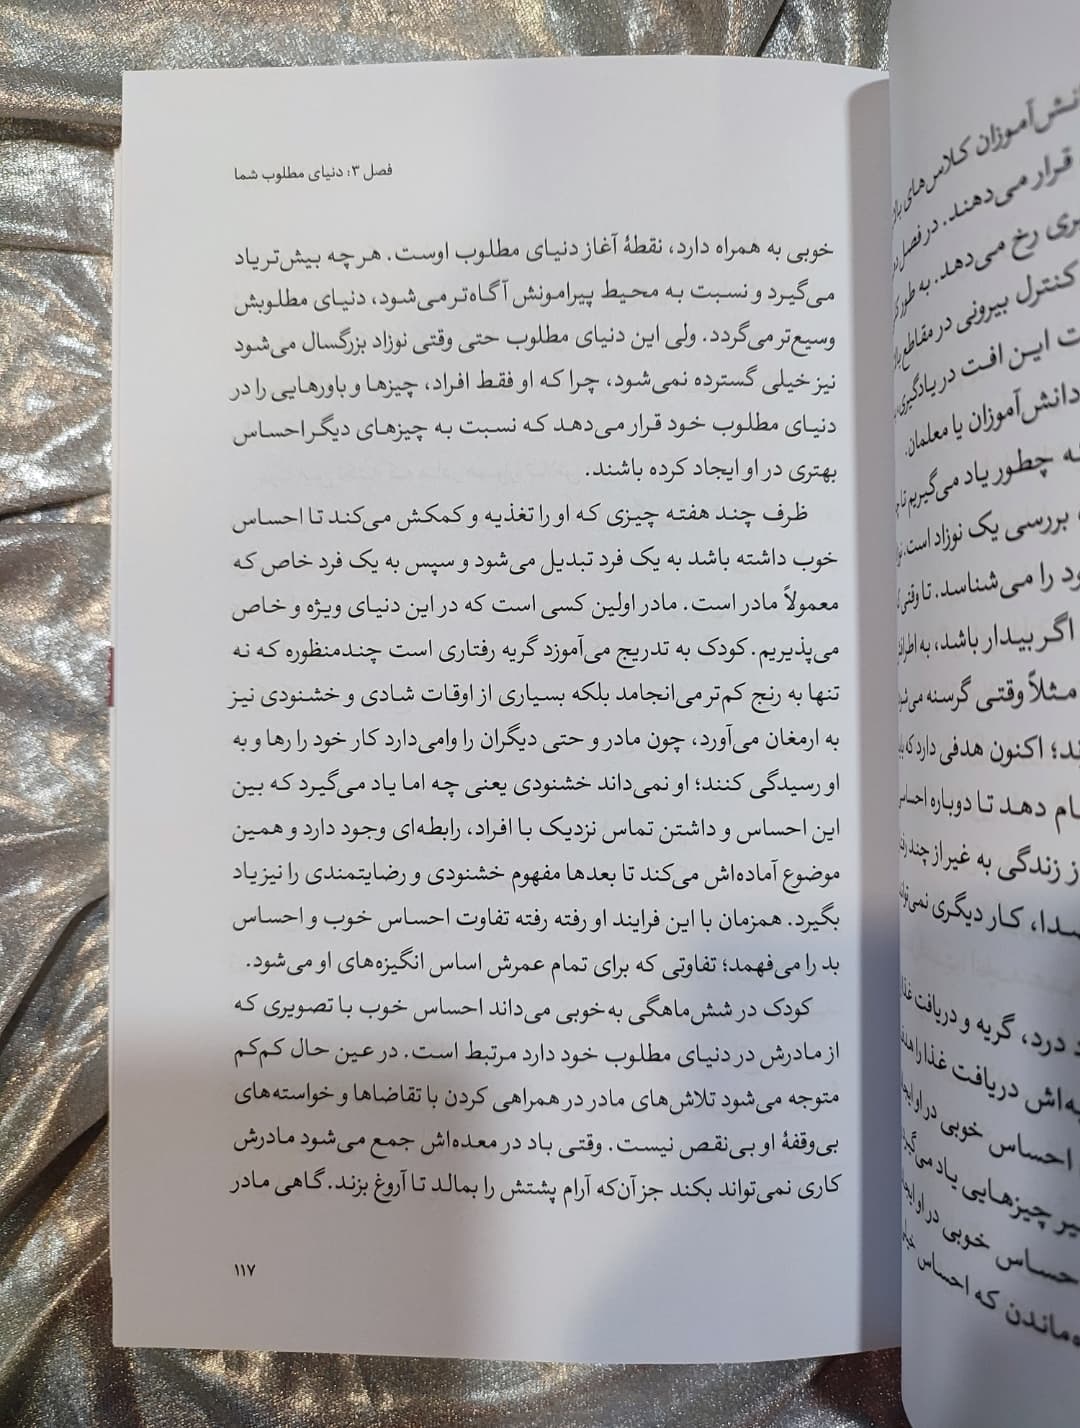 فصل ۳: دنیای مطلوب شما
خوبی به همراه دارد، نقطهٔ آغاز دنیای مطلوب اوست. هر چه بیش‌تر یاد
می‌گیرد و نسبت به محیط پیرامونش آگاه‌تر می‌شود، دنیای مطلوبش
وسیع‌تر می‌گردد. ولی این دنیای مطلوب حتی وقتی نوزاد بزرگسال می‌شود
نیز خیلی گسترده نمی‌شود، چرا که او فقط افراد، چیزها و باورهایی را در
دنیای مطلوب خود قرار می‌دهد که نسبت به چیزهای دیگر احساس
بهتری در او ایجاد کرده باشند.
ظرف چند هفته چیزی که او را تغذیه و کمکش می‌کند تا احساس
خوب داشته باشد به یک فرد تبدیل می‌شود و سپس به یک فرد خاص که
معمولاً مادر است. مادر اولین کسی است که در این دنیای ویژه و خاص
می‌پذیریم. کودک به تدریج می‌آموزد گریه رفتاری است چندمنظوره که نه
تنها به رنج کم‌تر می‌انجامد بلکه بسیاری از اوقات شادی و خشنودی نیز
به ارمغان می‌آورد، چون مادر و حتی دیگران را وامی‌دارد کار خود را رها و به
او رسیدگی کنند؛ او نمی‌داند خشنودی یعنی چه اما یاد می‌گیرد که بین
این احساس و داشتن تماس نزدیک با افراد، رابطه‌ای وجود دارد و همین
موضوع آماده‌اش می‌کند تا بعدها مفهوم خشنودی و رضایتمندی را نیز یاد
بگیرد. همزمان با این فرایند او رفته رفته تفاوت احساس خوب و احساس
بد را می‌فهمد؛ تفاوتی که برای تمام عمرش اساس انگیزه‌های او می‌شود.
کودک در شش‌ماهگی به‌خوبی می‌داند احساس خوب با تصویری که
از مادرش در دنیای مطلوب خود دارد مرتبط است. در عین حال کم‌کم
متوجه می‌شود تلاش‌های مادر در همراهی کردن با تقاضاها و خواسته‌های
بی‌وقفهٔ او بی‌نقص نیست. وقتی باد در معده‌اش جمع می‌شود مادرش
کاری نمی‌تواند بکند جز آن‌که آرام پشتش را بمالد تا آروغ بزند. گاهی مادر
۱۱۷
دانش‌آموزان کلاس‌های
قرار می‌دهند. در فصل
رخ می‌دهد. به طور
کنترل بیرونی در مقاطع
این افت در یادگیری
دانش‌آموزان یا معلمان.
چطور یاد می‌گیریم تا
بررسی یک نوزاد است.
را می‌شناسد. تا وقتی
اگر بیدار باشد، به
مثلاً وقتی گرسنه
اکنون هدفی دارد که
دهد تا دوباره
از زندگی به غیر از چند
کار دیگری
درد، گریه و دریافت
دریافت غذا را
احساس خوبی در او
چیزهایی یاد
خوبی در او
که احساس